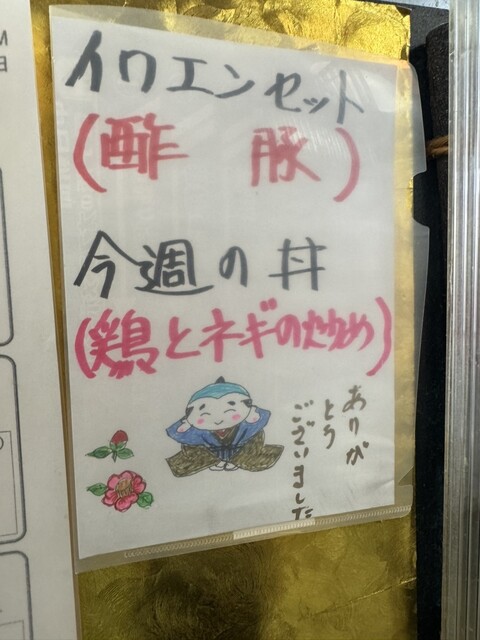 イワエンセット
(酢豚)
今週の丼
(鶏とネギの炒め)
ありがとうございました